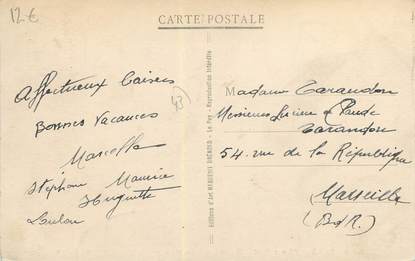 12 €
CARTE POSTALE
Affectueux baisers
Bonnes Vacances
43
Marcelle
Stéphane Maurice
Huguette
Loulou
Editions d'Art Le Puy - Reproduction interdite
Madame Tarandon
Messieurs Lucien et
Tarandon
54. rue de la République
Marseille
(B.d.R.)